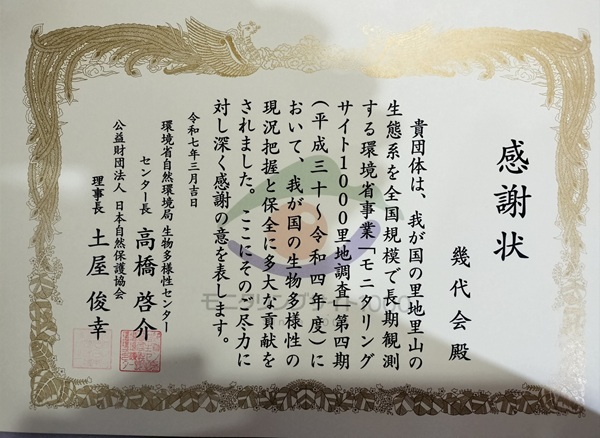 感謝状
幾代会殿
貴団体は、我が国の里地里山の
生態系を全国規模で長期観測
する環境省事業「モニタリング
サイト1000里地調査」第四期
（平成三十〜令和四年度）に
おいて、我が国の生物多様性の
現況把握と保全に多大な貢献を
されました。ここにそのご尽力に
対し深く感謝の意を表します。
令和七年三月吉日
環境省自然環境局 生物多様性センター
センター長 高橋 啓介
公益財団法人 日本自然保護協会
理事長 土屋 俊幸
モニタリングサイト1000